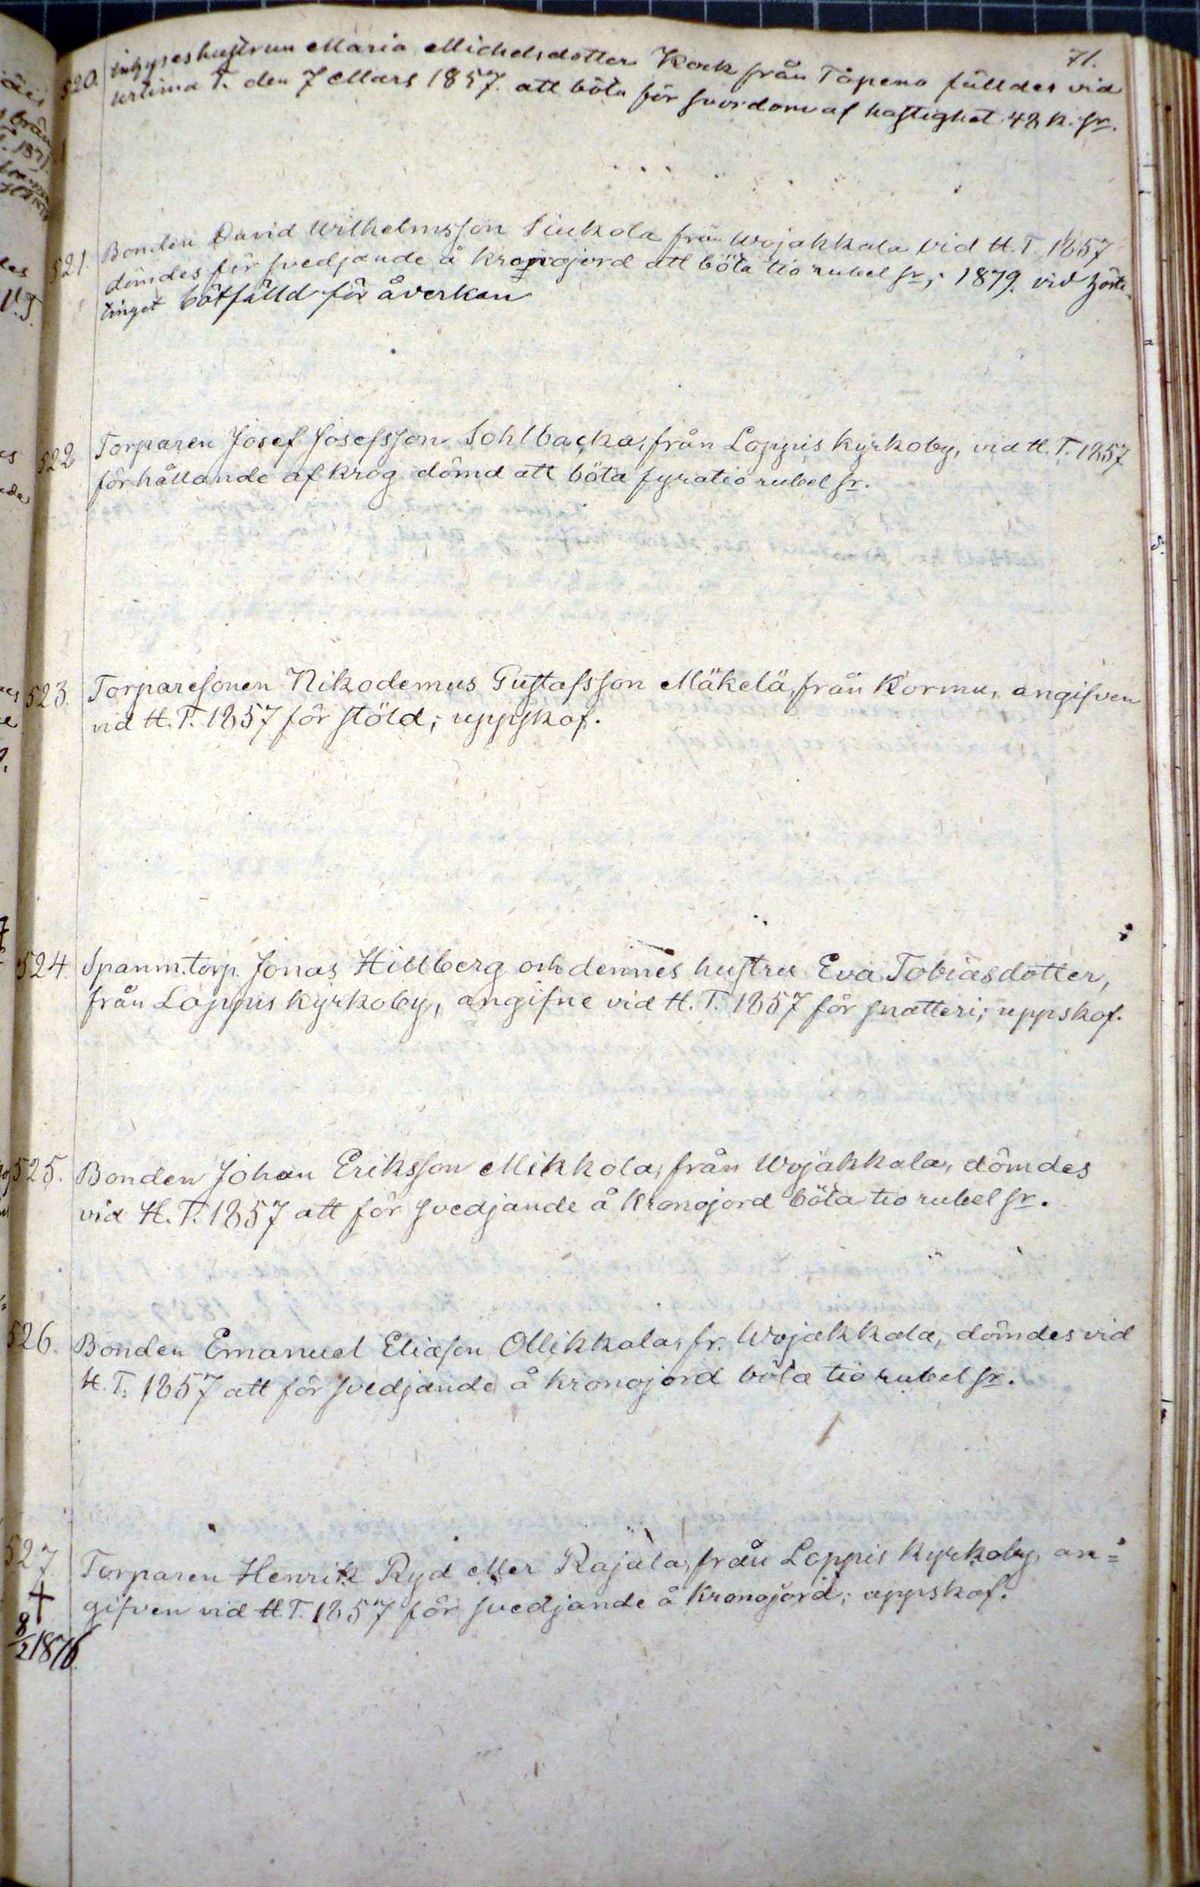 71.
520. Inhyseshustrun Maria Michelsdotter Kock från Topeno fälldes vid
Urtima T. den 7 Mars 1857. att böta för svordom af hastighet 48 k. sr.
521. Bonden David Wilhelmsson Siukola från Wojakkala vid H.T. 1857
dömdes för svedjande å kronojord att böta tio rubel sr; 1879 vid Höste
tinget bötfälld för åverkan
522 Torparen Josef Josefsson Sohlbacka, från Loppis Kyrkoby, vid H.T. 1857
för hållande af krog dömd att böta fyratio rubel sr.
523. Torparesonen Nikodemus Gustafsson Mäkelä, från Kormu, angifven
vid H.T. 1857 för stöld; uppskof.
524. Spanm.torp. Jonas Hillberg och dennes hustru Eva Tobiasdotter,
från Loppis Kyrkoby, angifne vid H.T. 1857 för snatteri; uppskof.
525. Bonden Johan Eriksson Mikkola, från Wojakkala, dömdes
vid H.T. 1857 att för svedjande å Kronojord böta tio rubel sr.
526. Bonden Emanuel Eliasson Ollikkala, fr. Wojakkala, dömdes vid
H.T. 1857 att för svedjande å kronojord böta tio rubel sr.
527 Torparen Henrik Ryd eller Rajala, från Loppis Kyrkoby, an=
gifven vid H.T. 1857 för svedjande å Kronojord; uppskof.
+
8/2 1876